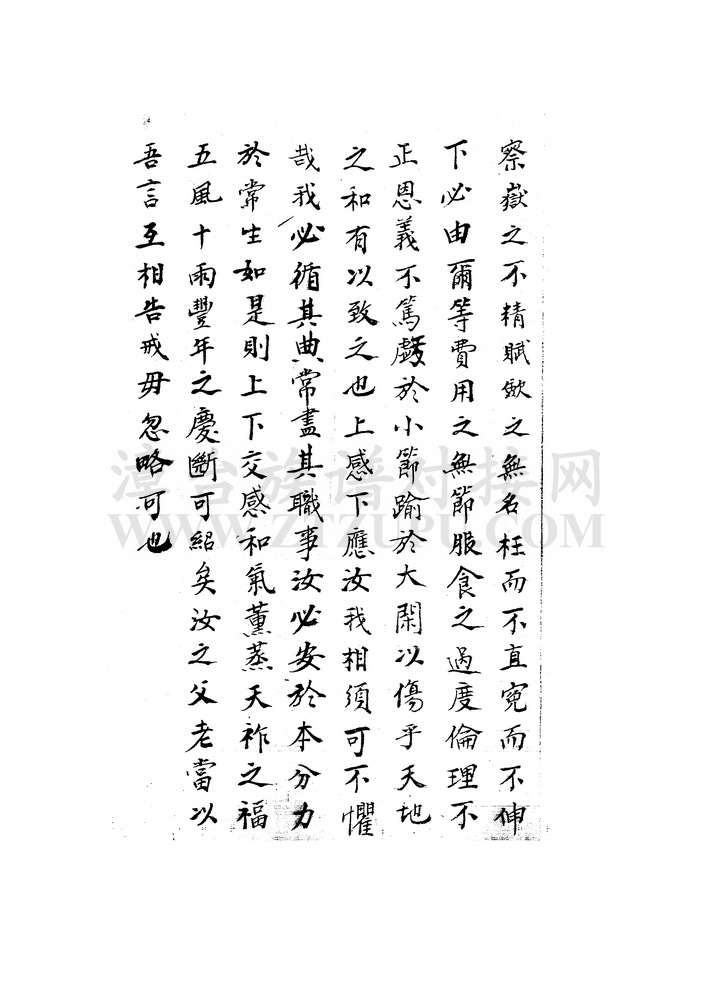 察嶽之不精賦斂之無名枉而不直寃而不伸
下必由爾等費用之無節服食之過度倫理不
正恩義不篤戲於小節踰於大閑以傷乎天地
之和有以致之也上感下應汝我相須可不懼
哉我必循其典常盡其職事汝必安於本分力
於常生如是則上下交感和氣薰蒸天祚之福
五風十雨豐年之慶斷可紹矣汝之父老當以
吾言互相告戒毋忽略可也
漳台族谱对接网
WWW.ZTZUPU.COM